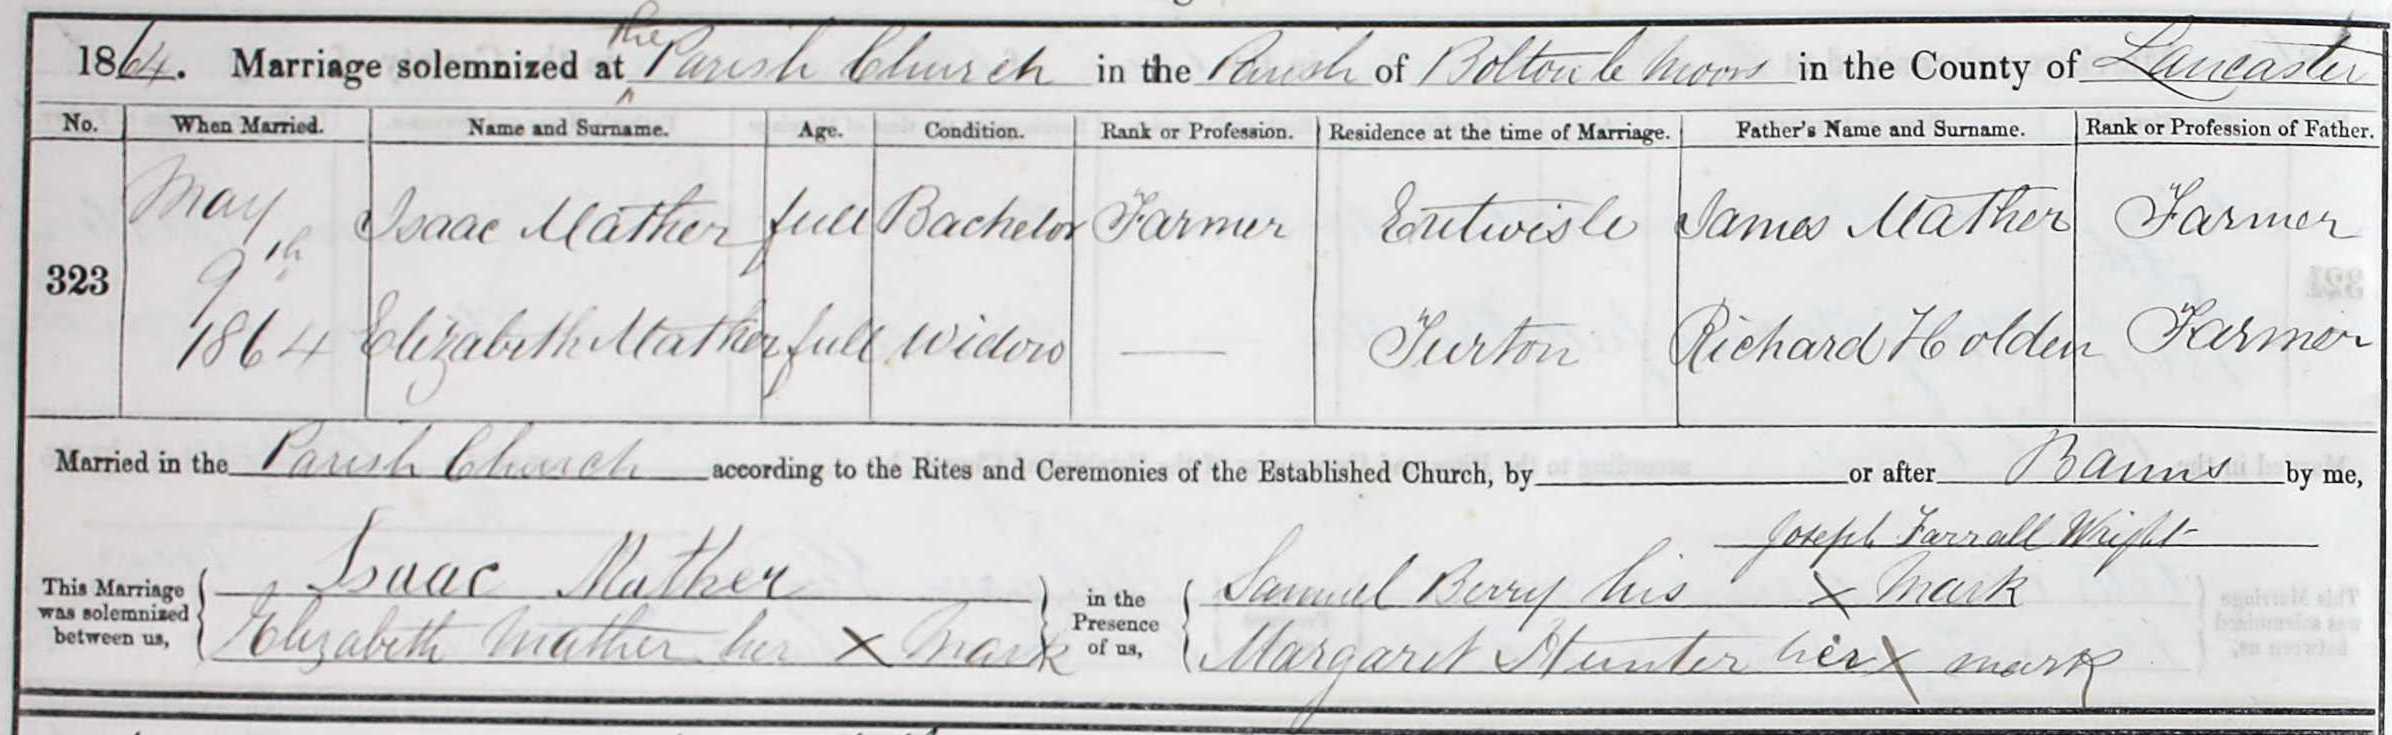 1864. Marriage solemnized at the Parish Church in the Parish of Bolton le Moors in the County of Lancaster
No. When Married. Name and Surname. Age. Condition. Rank or Profession. Residence at the time of Marriage. Father's Name and Surname. Rank or Profession of Father.
323 May 9th 1864 Isaac Mather full Bachelor Farmer Entwisle James Mather Farmer
Elizabeth Mather full Widow — Turton Richard Holden Farmer
Married in the Parish Church according to the Rites and Ceremonies of the Established Church, by or after Banns by me,
Joseph Farrall Wright
This Marriage was solemnized between us, Isaac Mather in the Presence of us, Samuel Berry his X mark
Elizabeth Mather her X mark Margaret Hunter her X mark